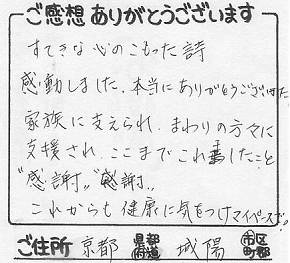 ご感想ありがとうございます
すてきな心のこもった詩
感動しました。本当にありがとうございました。
家族に支えられ、まわりの方々に
支援され、ここまでこれましたこと
"感謝" "感謝"
これからも健康に気をつけマイペースで。
ご住所 京都 都道府県 城陽 市区町郡